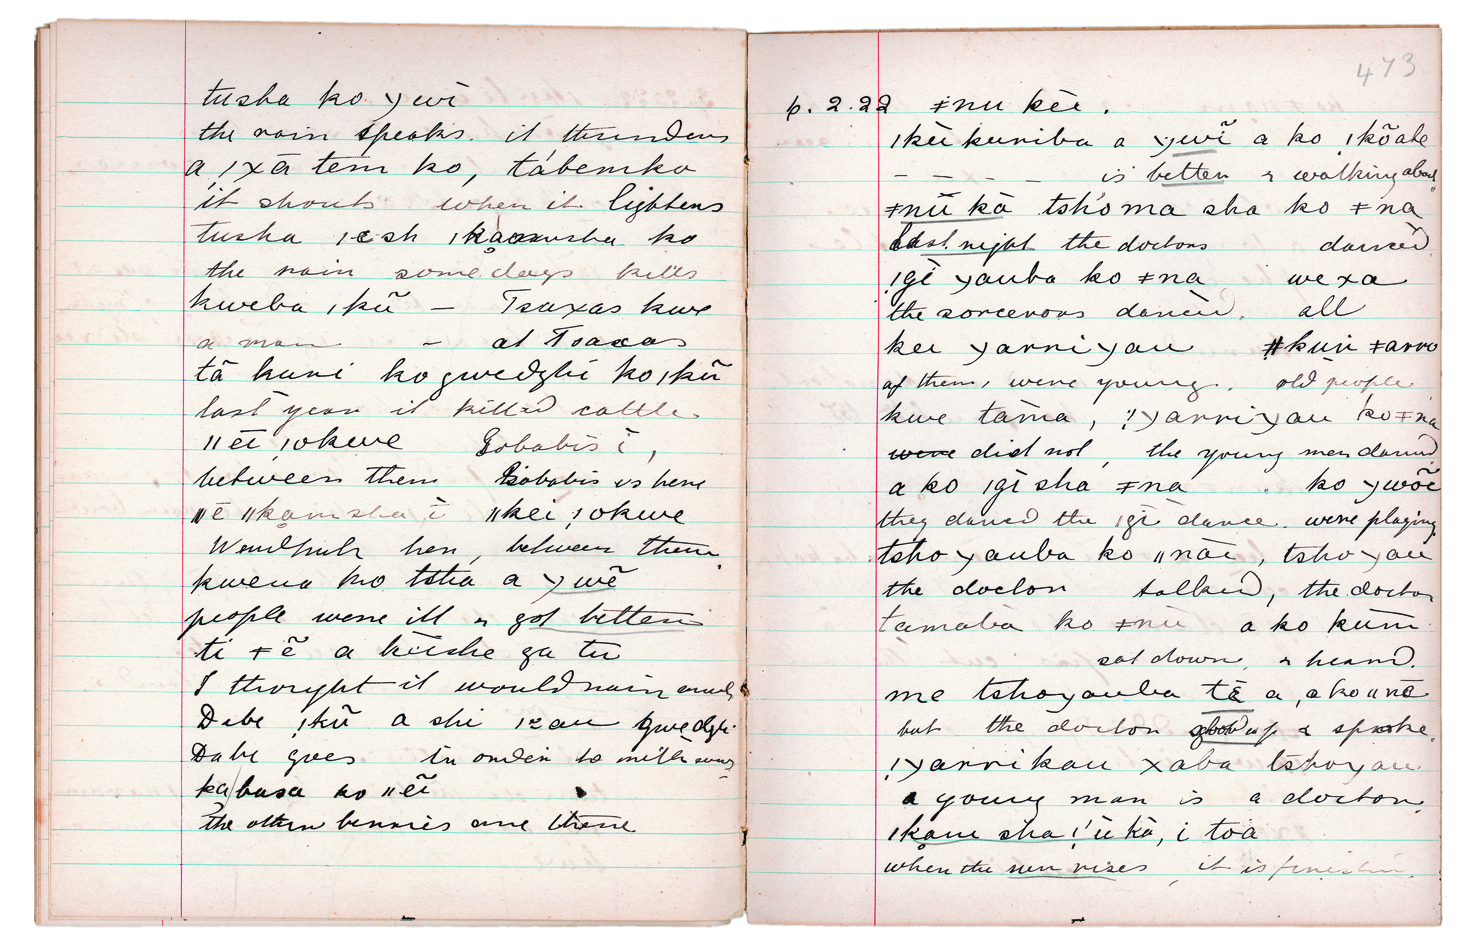 tusha ko ɣwī
the rain speaks. it thunders
a ǀxā tem ko, tábemko
it shouts when it lightens
tusha ko
the rain some days kills
kweba ǀkũ – Tsaxas kwe
a man – at Tsaxas
tā kuni ko gwedzhi ko ǀkũ
last year it killed cattle
ǁēī ǃokwe Gobabis ī,
between them Gobabis is here
ǁē ǁkamsha ī ǁkei ǃokwe
Windhuk here, between them
kwena ko tsha a ɣwē
people were ill & got better
ti ǂē a küshe ga tu
I thought it would rain early
Dabe ǀkũ a shi gwedzhi
Dabe goes in order to milk cows
kabasa ko ǁēī
the other berries are there
473
6.2.22 ǂnu kei.
ǀkūkuniba a ɣwī a ko ǀkõabe
– – – – is better & walking about
ǂnū kà tshoma sha ko ǂna
last night the doctors danced
ǀgī ɣauba ko ǂna wexa
the sorcerors danced. all
kei ɣarriɣau ǂkuri ǂarro
of them, were young. old people
kwe tāma, ǃɣarriɣau ko ǂna
were did not, the young men danced
a ko ǀgī sha ǂna ko ɣwõē
they danced the ǀgī dance. were playing
tshoɣauba ko ǁnāe, tshoɣau
the doctor talked, the doctor
tamaba ko ǂnū a ko kūm
sat down, & heard.
me tshoɣauba tē a, a ko ǁnē
but the doctor stood up & spoke.
ǃɣarrikau xaba tshoɣau
a young man is a doctor
ǀkam sha ǃ'ū kà, i toa
when the sun rises, it is finished.